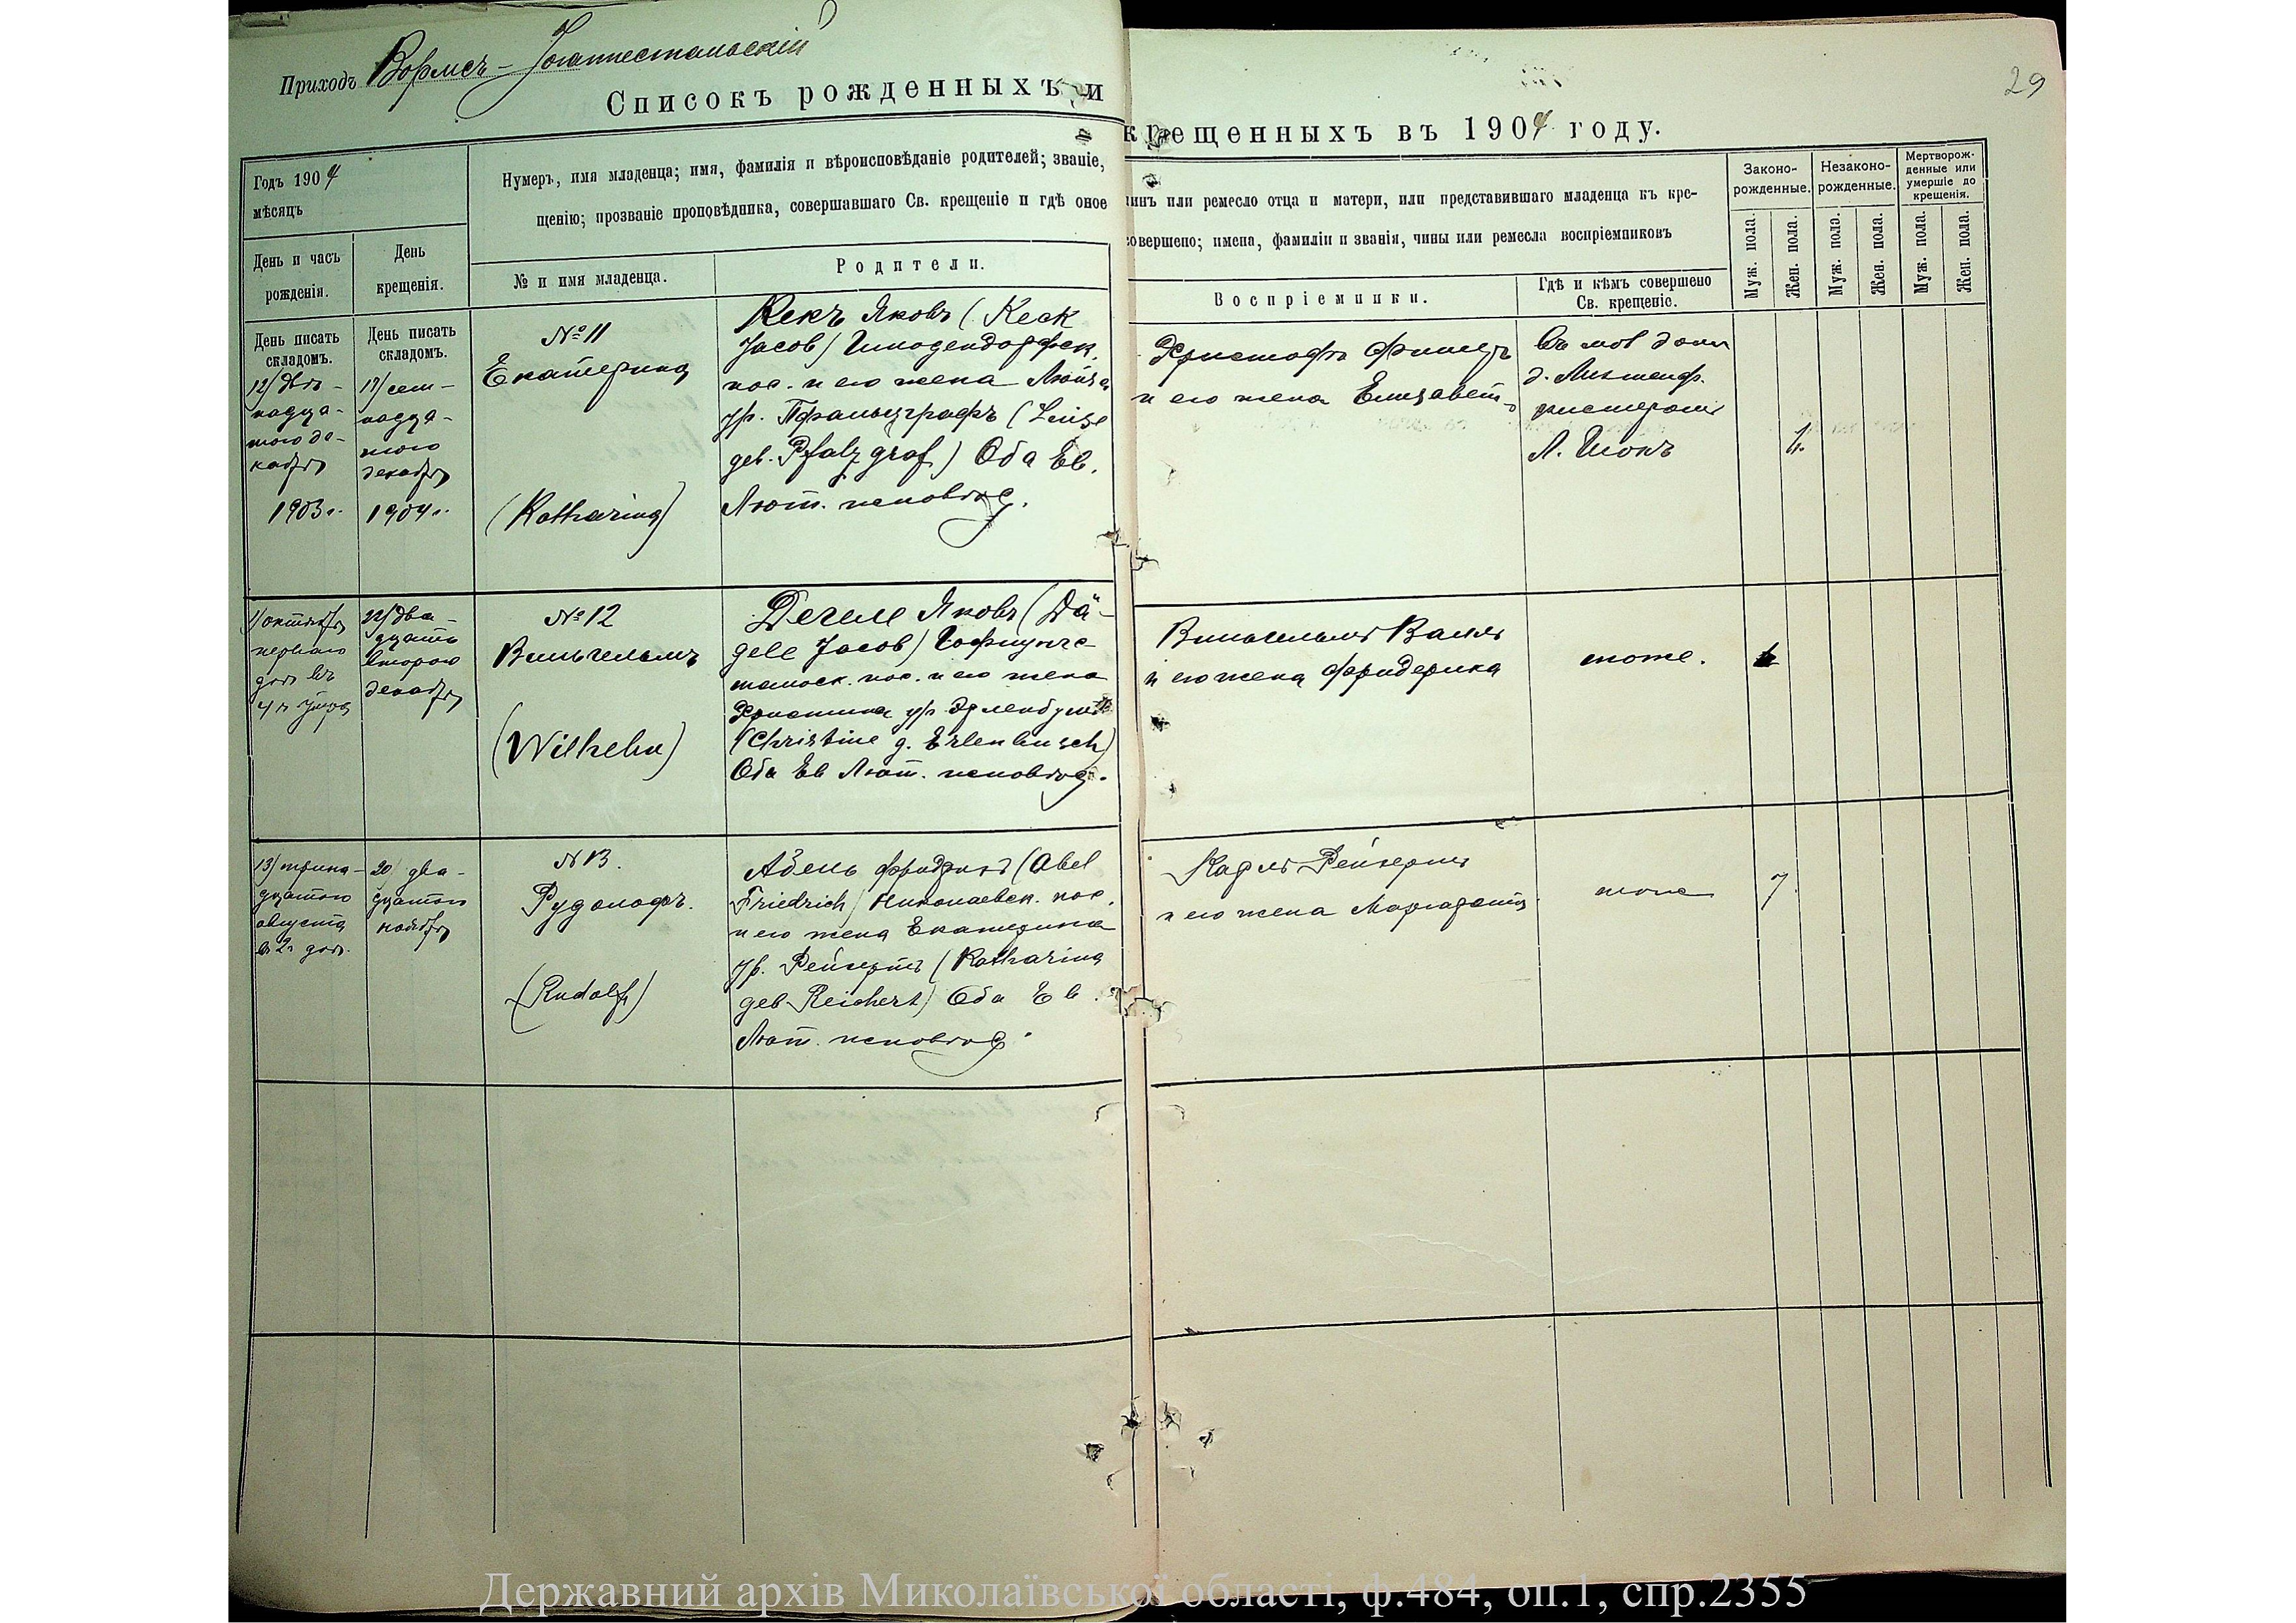 Приходъ Вормсъ-Іоганнестальскій
29
Списокъ рожденныхъ и крещенныхъ въ 1904 году.
Годъ 1904
мѣсяцъ
Нумеръ, имя младенца; имя, фамилія и вѣроисповѣданіе родителей; званіе, чинъ или ремесло отца и матери, или представившаго младенца къ кре-
щенію; прозваніе проповѣдника, совершавшаго Св. крещеніе и гдѣ оное совершено; имена, фамиліи и званія, чины или ремесла воспріемниковъ
Законо-
рожденные.
Незаконо-
рожденные.
Мертворож-
денные или
умершіе до
крещенія.
День и часъ
рожденія.
День
крещенія.
№ и имя младенца.
Родители.
Воспріемники.
Гдѣ и кѣмъ совершено
Св. крещеніе.
Муж. пола.
Жен. пола.
Муж. пола.
Жен. пола.
Муж. пола.
Жен. пола.
День писать
складомъ.
12/ двѣ-
надца-
таго де-
кабря
1903 г.
День писать
складомъ.
17/ сем-
надца-
таго
декабря
1904 г.
№ 11
Екатерина
(Katharina)
Кекъ Яковъ (Keck
Jacob)
пос. и его жена Луиза
ур. Пфальцграфъ (Luise
geb. Pfalzgraf) Оба Ев.
Лют. исповѣд.
Христофъ
и его жена Елизавета
въ мол. домѣ
д.
кистеромъ
Л. Шокъ
1/ октября
перваго
дня въ
4 ч. утра
22/ два-
дцать
второго
декабря
№ 12
Вильгельмъ
(Wilhelm)
Дегеле Яковъ (Dä-
gele Jacob) Гофнунгс-
тальск. пос. и его жена
Христина ур. Эрленбушъ
(Christine g. Erlenbusch)
Оба Ев Лют. исповѣд.
Вильгельмъ Валь
и его жена Фридерика
тоже.
13/ трина-
дцатого
августа
въ 2 ч. дня.
20/ два-
дцатого
ноября
N 13.
Рудольфъ.
(Rudolf)
Абель Фридрихъ (Abel
Friedrich) Николаевск. пос.
и его жена Екатерина
ур. Рейхертъ (Katharina
geb. Reichert) Оба Ев.
Лют. исповѣд.
Карлъ Рейхертъ
и его жена Маргарета
тоже
7
Державний архів Миколаївської області, ф.484, оп.1, спр.2355